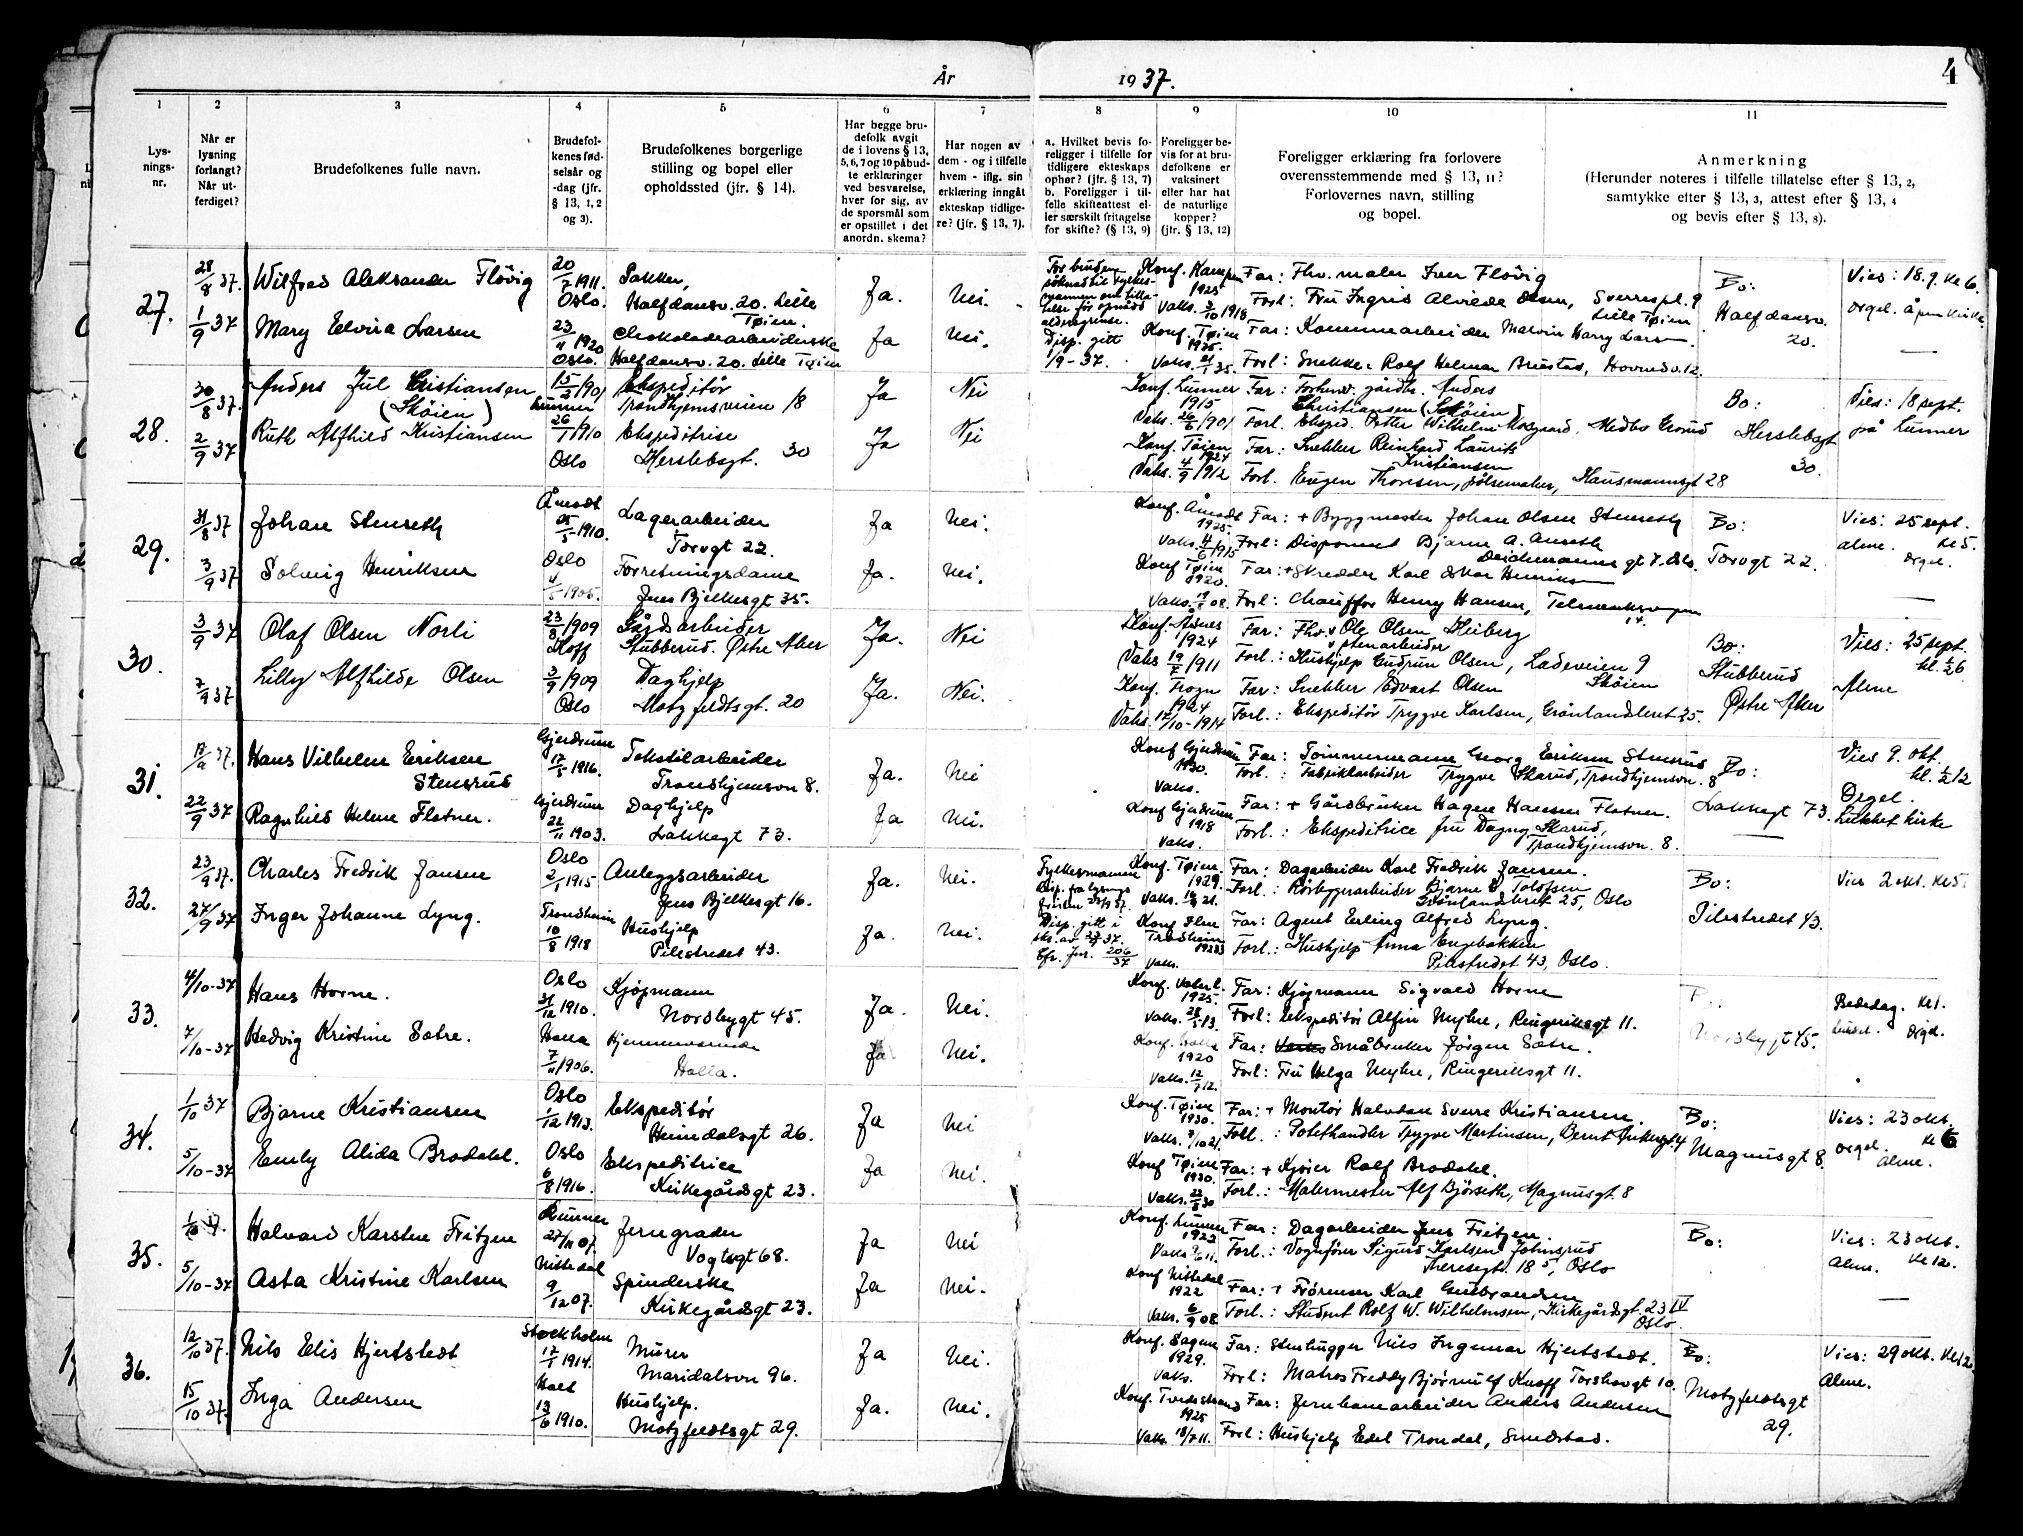 År 1937. 4
1 2 3 4 5 6 7 8 9 10 11
Lys-
nings-
nr.
Når er
lysning
forlangt?
Når ut-
ferdiget?
Brudefolkenes fulle navn.
Brudefol-
kenes fød-
selsår og
-dag (jfr.
§ 13, 1, 2
og 3).
Brudefolkenes borgerlige
stilling og bopel eller
opholdssted (jfr. § 14).
Har begge bru-
defolk avgit
de i lovens § 13,
5, 6, 7 og 10 påbud-
te erklæringer
ved besvarelse,
hver for sig, av
de spørsmål som
er opstillet i det
anordn. skema?
Har nogen av
dem - og i tilfelle
hvem - iflg. sin
erklæring inngått
ekteskap tidlige-
re? (jfr. § 13, 7).
a. Hvilket bevis fo-
religger i tilfelle for
tidligere ekteskaps
ophør? (jfr. § 13, 7)
b. Foreligger i til-
felle skifteattest el-
ler særskilt fritagelse
for skifte? (§ 13, 9)
Foreligger be-
vis for at bru-
defolkene er
vaksinert
eller har hat
de naturlige
kopper?
(jfr. § 13, 12)
Foreligger erklæring fra forlovere
overensstemmende med § 13, 11?
Forlovernes navn, stilling
og bopel.
Anmerkning
(Herunder noteres i tilfelle tillatelse efter § 13, 2,
samtykke efter § 13, 3, attest efter § 13, 4
og bevis efter § 13, 8).
27.
28/8 37. Wilfred Aleksander Fløvig 20/7 1911. Oslo. Pakker, Halfdansv. 20. Lille Tøien. Ja. Nei.
Konf. Kampen 1925 Vaks. 3/10 1918
Far: Fhv. maler Iver Fløvig
Forl: Fru Ingrid Alvilde Olsen, Sverrespl. 9 Lille Tøien
1/9 37 Mary Elvira Larsen 23/4 1920 Oslo. Chokoladearbeiderske Halfdansv. 20. Lille Tøien Ja Nei.
Disp. gitt 1/9-37.
Konf. Tøien Vaks. 35.
Far: Kommunearbeider Marvin Harry Larsen.
Forl: Snekker Rolf Helmer Bristad, Hovinsv. 12.
Bo: Halfdansv. 20.
Vies: 18.9. kl 6. orgel. åpen kirke
28.
30/8 37. Anders Jul Cristiansen (Skøien) 15/2 1901 Lunner Ekspeditør Trondhjemsveien 18 Ja Nei
Konf. Lunner 1915 Vaks. 26/6 1901
Far: Forhenv. gårdbr. Anders Christiansen (Skøien)
Forl. Eksped. Petter Wilhelm Mosgaard. Medbo Grorud
2/9 37 Ruth Alfhild Kristiansen 26/1 1910 Oslo Ekspeditrise Herslebsgt. 30 Ja Nei
Konf. Tøien 1924 Vaks. 4/9 1912
Far: Snekker Reinhard Laurits Kristiansen
Forl. Eugen Thoresen, pølsemaker, Hausmannsgt 28
Bo: Herslebsgt 30.
Vies: 18 sept. på Lunner
29.
31/8 37 Johan Stenseth Åmodt 25/5 1910. Lagerarbeider Torvgt 22. Ja Nei.
Konf. Åmodt 1925. Vaks. 4/6 1915
Far: + Byggmester Johan Olsen Stenseth
Forl: Disponent Bjarne A. Anseth Deichmannsgt 7. Oslo.
3/9 37 Solveig Henriksen Oslo 1905. Forretningsdame Jens Bjelkesgt 35. Ja. Nei.
Konf Tøien 1920. Vaks. 08.
Far: + Skredder Karl Oskar Henriksen
Forl: Chauffør Henry Hansen, Telemarksvn 14.
Bo: Torvgt 22.
Vies: 25 sept. kl 5. alm. orgel.
30.
3/9 37 Olaf Olsen Norli 23/8 1909 Hoff Gårdsarbeider Stubberud. Østre Aker Ja. Nei
Konf. Åsnes 1924 Vaks 19/7 1911
Far: Fhv. stenarbeider Ole Olsen Kleiberg
Forl.: Hushjelp Gudrun Olsen, Ladeveien 9 Skøien
7/9 37 Lilly Alfhilde Olsen 3/9 1909 Oslo Daghjelp Motzfeldtsgt. 20 Ja. Nei.
Konf. Frogn 1924 Vaks. 17/10-1914
Far: Snekker Edvart Olsen
Forl.: Ekspeditør Trygve Karlsen, Grønlandsleret 25.
Bo: Stubberud Østre Aker
Vies: 25 sept. kl. 1/2 6 Alm
31.
37. Hans Vilhelm Eriksen Stensrud Gjerdrum 17/8-1916. Tekstilarbeider Trondhjemsvn 8. Ja. Nei
Konf. Gjerdrum 1930. Vaks.
Far: Tømmermann Georg Eriksen Stensrud
Forl: Fabrikkarbeider Trygve Skarud, Trondhjemsvn. 8
22/9 37 Ragnhild Helene Flatner. Gjerdrum 22/11 1903. Daghjelp Lakkegt 73. Ja Nei.
Konf Gjerdrum 1918 Vaks.
Far: + Gårdbruker Hagen Hansen Flatner.
Forl.: Ekspeditrice fru Dagny Skarud, Trondhjemsvn. 8.
Bo: Lakkegt 73.
Vies 9. okt. kl. 1/2 2 Orgel. Lukket kirke
32.
23/9 37. Charles Fredrik Jansen Oslo 2/1 1915 Anleggsarbeider Jens Bjelkesgt 16. Ja. Nei.
Konf. Tøien 1929. Vaks. 21.
Far: Dagarbeider Karl Fredrik Jansen.
Forl.: Rørbyggerarbeider Bjarne E Tolofsen Grønlandsleret 25, Oslo
27/9 37 Inger Johanne Lyng. Trondheim 10/8 1918 Hushjelp Pilestredet 43. Ja. Nei.
Fylkesmannen Disp. gitt i skr. av 37. Cfr. Jnr. 206/37
Konf Ilen Trondheim Vaks.
Far: Agent Erling Alfred Lyng.
Forl.: Hushjelp Anna Engebakken Pilestredet 43, Oslo.
Bo: Pilestredet 43.
Vies 2 okt. kl 5.
33.
4/10-37 Hans Horne. Oslo 31/12 1910. Kjøpmann Nordbygt 45. Ja. Nei.
Konf. Vaterl. 1925. Vaks. 28/5 13.
Far: Kjøpmann Sigvald Horne
Forl: Ekspeditør Alfin Myhre, Ringeriksgt 11.
7/10-37 Hedvig Kristine Sætre. Holla 7/11 1906. Hjemmeværende Holla. Ja Nei.
Konf. Holla 1920 Vaks. 12.
Far: Småbruker Jørgen Sætre.
Forl: Fru Helga Myhre, Ringeriksgt 11.
Bo: Nordbygt 45.
Bededag. kl 1. orgel.
34.
1/10 37 Bjarne Kristiansen Oslo 1/12 1913. Ekspeditør Heimdalsgt 26. Ja Nei
Konf. Tøien 1930. Vaks. 7/10 21.
Far: + Montør Halvdan Sverre Kristiansen.
Forl.: Potethandler Trygve Martinsen, Bernt Ankersgt. 4
5/10-37 Emly Alida Brodahl. Oslo 6/8 1916. Ekspeditrice Kirkegårdsgt 23. Ja Nei.
Konf Tøien 1930. Vaks. 22/8 30
Far: + Kjører Rolf Brodahl.
Forl.: Malermester Alf Bjørseth, Magnusgt. 8
Bo: Magnusgt 8.
Vies: 23 okt. kl 6 orgel. Alm.
35.
1/10 37. Halvard Karsten Fritzen Lunner 27/11 07. Jerngrader Vogtsgt 68. Ja Nei
Konf. Lunner 1923 Vaks. 11.
Far: Dagarbeider Jens Fritzen
Forl.: Vognfører Sigurd Karlsen Johnsrud Theresegt. 18 5, Oslo
5/10-37 Asta Kristine Karlsen Nittedal 9/12 07. Spinderske Kirkegårdsgt 23. Ja Nei.
Konf Nittedal 1922 Vaks. 6/9 08
Far: + Karl Gulbrandsen
Forl.: Student Rolf W. Wilhelmsen, Kirkegårdsgt. 23 IV Oslo.
Bo:
Vies: 23 okt. kl 12. Alm.
36.
12/10 37. Nils Elis Hjertstedt Stockholm 17/1 1914. Murer Maridalsvn 96. Ja Nei.
Konf. Sagene 1929. Vaks.
Far: Stenhugger Nils Ingemar Hjertstedt.
Forl: Matros Freddy Bjørnulf Knoff Torshovgt 10.
15/10 37. Inga Andersen Holt 13/6 1910. Hushjelp. Motzfeldtsgt 29. Ja. Nei.
Konf. Tvedestrand 1925 Vaks. 18/7 11.
Far: Jernbanearbeider Anders Andersen
Forl: Hushjelp Edel Trondal, Sundstad.
Bo: Motzfeldtsgt 29.
Vies: 29 okt. kl 12 Alm.